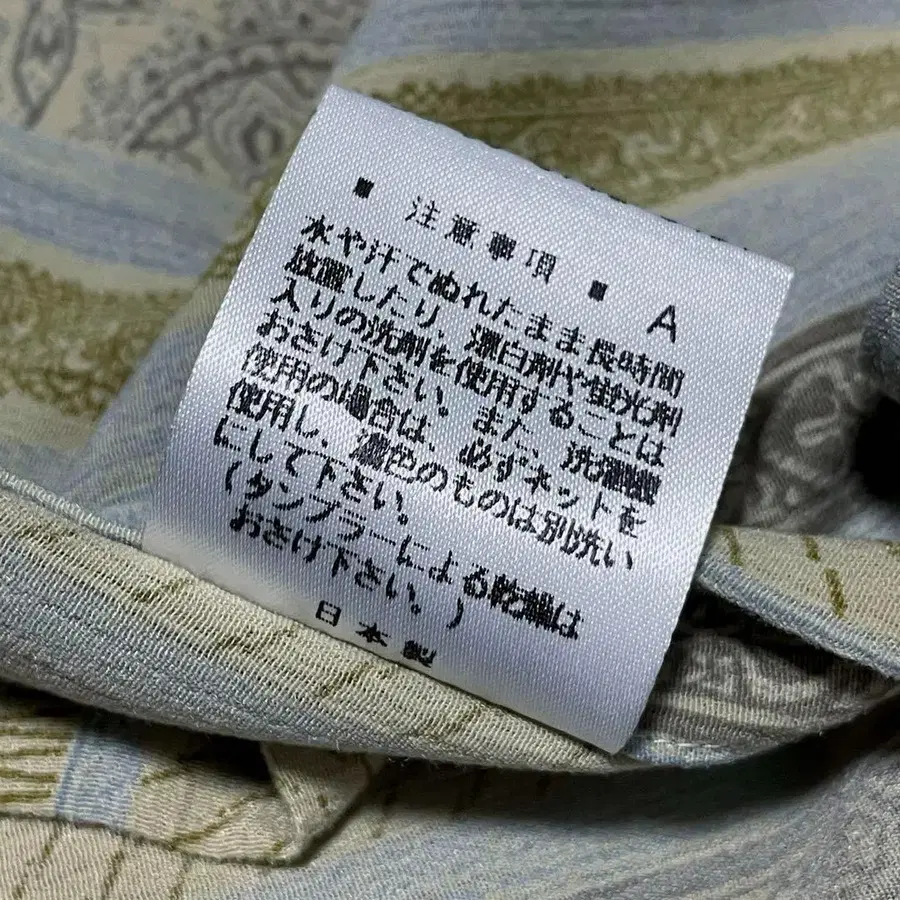 ■ 注意事項 ■ A
水や汗でぬれたまま長時間
放置したり、漂白剤や蛍光剤
入りの洗剤を使用することは
おさけ下さい。また、洗濯機
使用の場合は、必ずネットを
使用し、濃色のものは別洗い
にして下さい。
(タンブラーによる乾燥は
おさけ下さい。)
日本製